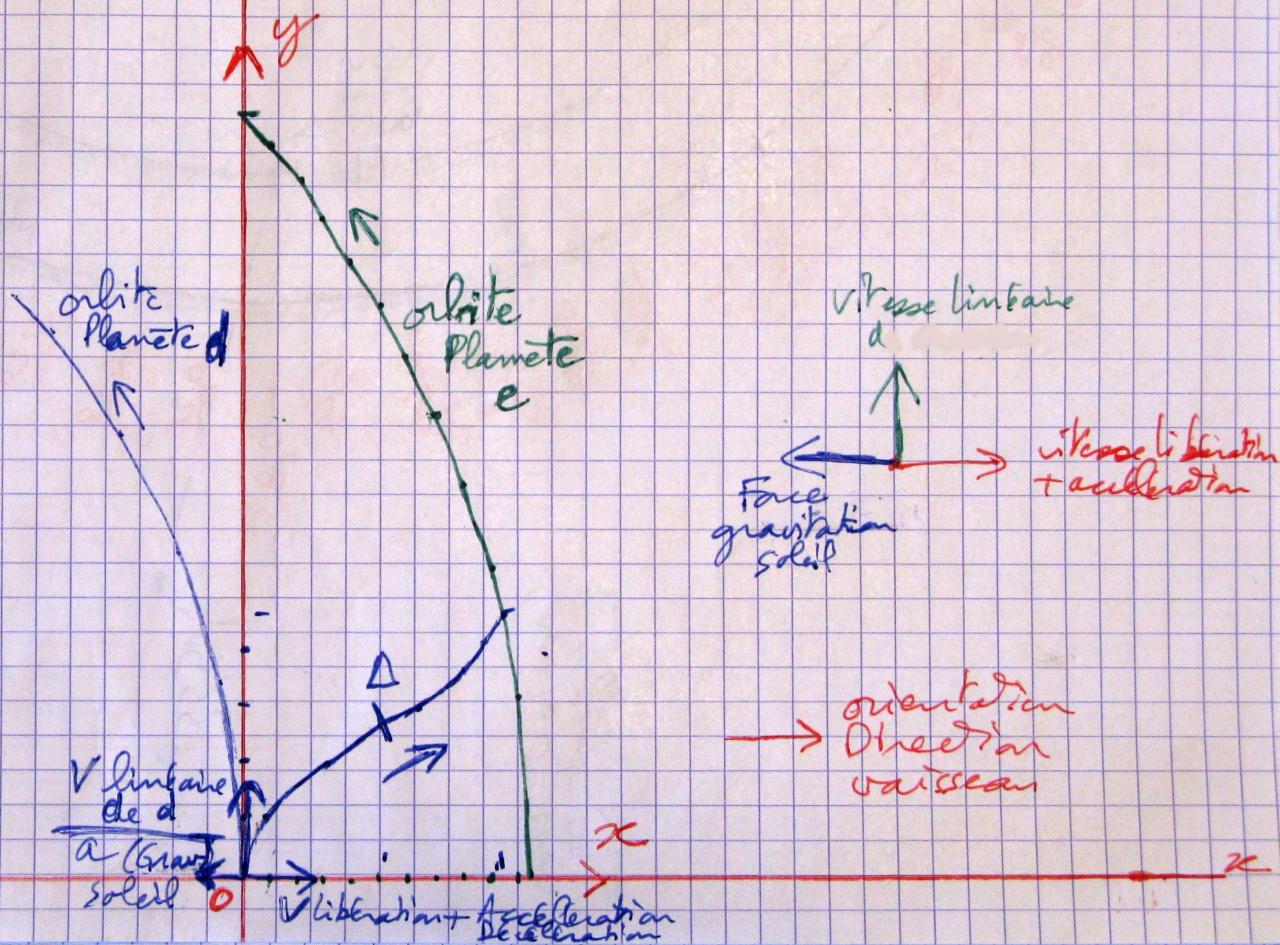 y
orbite
Planète d
orbite
Planète
e
vitesse linéaire
d
vitesse libération
+ accélération
Force
gravitation
soleil
Δ
orientation
Direction
vaisseau
V linéaire
de d
a (Grav)
soleil
O
x
x
V libération + Accélération
Décélération